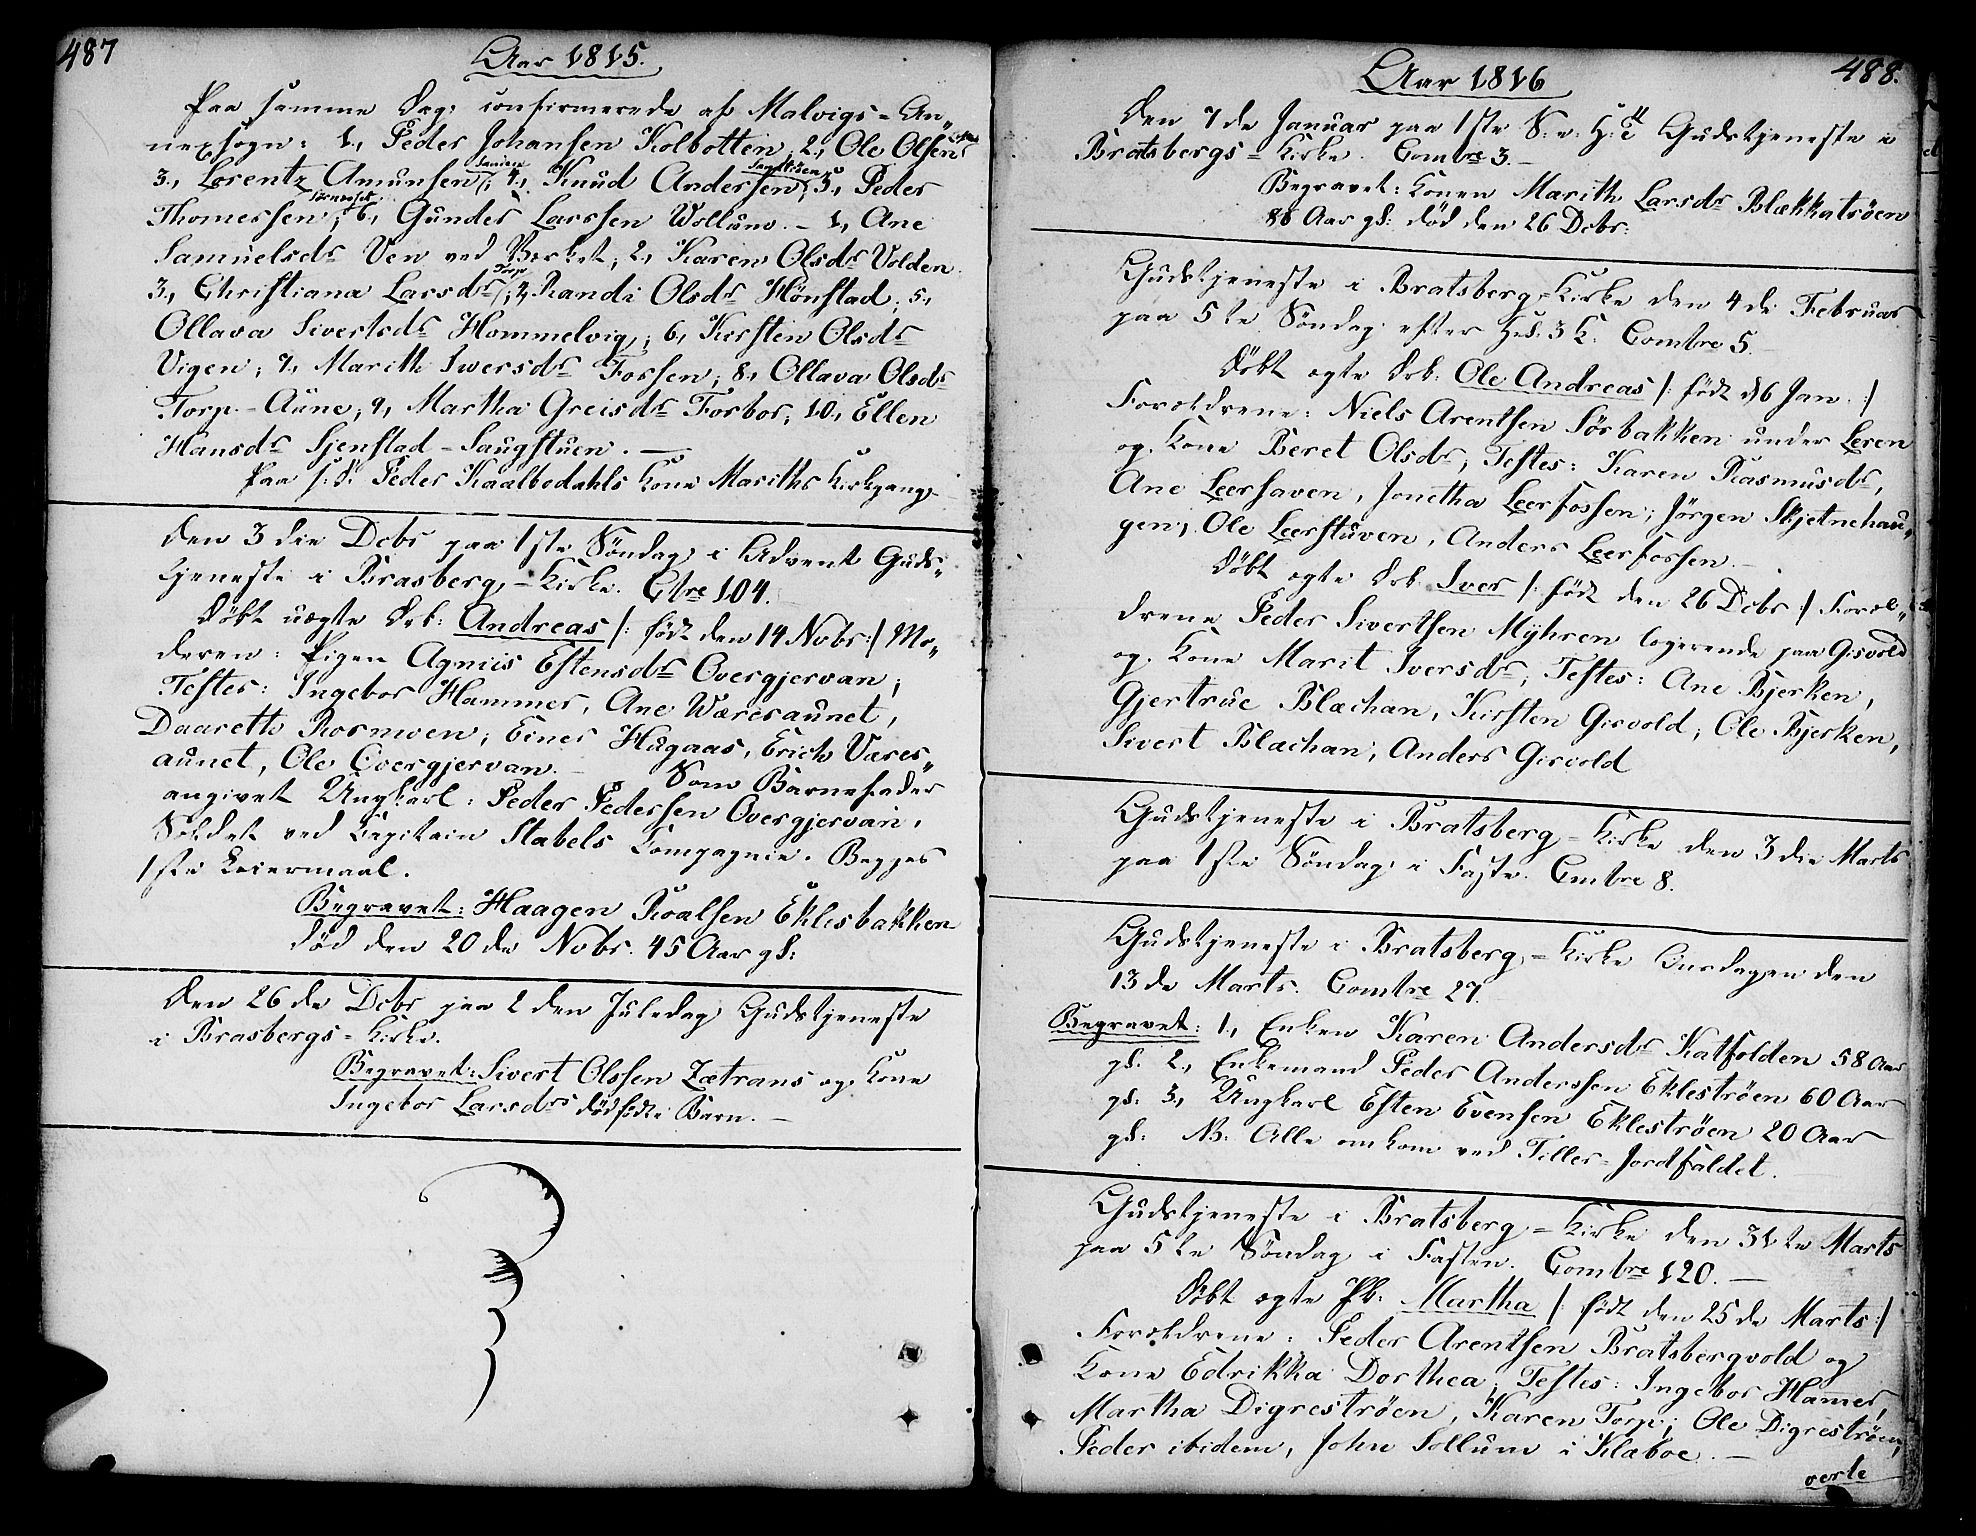 487
Aar 1815.
Paa samme Dag: confirmerede af Malvigs-An„
nexsogn: 1., Peder Johansen Kolbotten, 2., Ole Olsen
3., Lorentz Amunsen, 4., Knud Andersen, 5., Peder
Thomessen, 6., Gunder Larssen Wollum. – 1., Ane
Samuelsdr Ven ved Verket, 2., Karen Olsdr Volden.
3., Christiana Larsdr Torp, 4., Randi Olsdr Hönstad, 5.,
Ollava Sivertsdr Hommelvig, 6., Kirsten Olsdr
Vigen, 7., Marith Iwersdr Fossen, 8., Ollava Olsdr
Torp-Aune, 9., Martha Greisdr Forbor, 10., Ellen
Hansdr Sjenstad-Saugstuen. —
Paa s: D: Peder Kaalbodahls Kone Mariths Kirkgang.
Den 3die Dcbr paa 1ste Söndag i Advent Guds„
tjeneste i Brasberg-Kirke. Ctre 104.
Döbt uægte Drb: Andreas /: födt den 14 Nobr:/ Mo„
deren: Pigen Agniis Estensdr Overgjervan;
Testes: Ingebor Hammer, Ane Wæresaunet,
Daaretth Rosmoen, Einer Hugaas, Erich Væres„
aunet, Ole Overgjervan. – Som Barnefader
angivet Ungkarl: Peder Pedersen Overgjervan,
Soldat ved Capitain Stabels Compagnie. Begges
1ste Leiermaal.
Begravet: Haagen Roalsen Eklesbakken
död den 20de Nobr. 45 Aar gl:
Den 26de Dcbr paa 2den Juledag Gudstjeneste
i Brasbergs-Kirke.
Begravet: Sivert Olssen Zætrans og Kone
Ingebor Larsdrs dödfödte Barn. –
488.
Aar 1816
Den 7de Januar paa 1ste S: e: H: 3 K Gudstjeneste i
Bratsbergs-Kirke. Comtre 3. –
Begravet: Konen Marith Larsdr Blækkatröen
86 Aar gl: död den 26 Dcbr:
Gudstjeneste i Bratsberg-Kirke den 4de Februar
paa 5te Söndag efter H: 3 K. Comtre 5.
Döbt ægte Drb: Ole Andreas /: födt d 6 Jan. :/
Forældrene: Niels Arentsen Sörbakken under Leren
og Kone Beret Olsdr; Testes: Karen Rasmusdr,
Ane Leerhaven, Jonetha Leerfossen; Jörgen Skjetnehau„
gen, Ole Leerstuven, Anders Leerfossen. –
Döbt ægte Drb. Iver /: födt den 26 Dcbr :/ Foræl„
drene Peder Sivertsen Mÿhren logerende paa Gisvold
og Kone Marit Iversdr; Testes: Ane Bjerken,
Gjertrue Blæchan, Kirsten Gisvold; Ole Bjerken,
Sivert Blæchan, Anders Gisvold
Gudstjeneste i Bratsberg-Kirke den 3die Marts
paa 1ste Söndag i Faste. Comtre 8.
Gudstjeneste i Bratsberg-Kirke Onsdagen den
13de Marts. Comtre 27.
Begravet: 1., Enken Karen Andersdr Katfolden 58 Aar
gl. 2., Enkemand Peder Anderssen Eklestrôen 60 Aar
gl: 3., Ungkarl Esten Evensen Eklestrôen 20 Aar
gl: NB. Alle omkom ved Tiller-Jordfaldet.
Gudstjeneste i Bratsberg-Kirke den 31te Marts
paa 5te Söndag i Fasten. Comtre 120. –
Döbt ægte Pb: Martha /: födt den 25de Marts:/
Forældrene: Peder Arentsen Bratsbergvold og
Kone Edrikka Dorthea; Testes: Ingebor Hamer,
Martha Digrestrôen, Karen Torp; Ole Digrestrôen,
Peder ibidem, John Sollum i Klæboe. –
verte